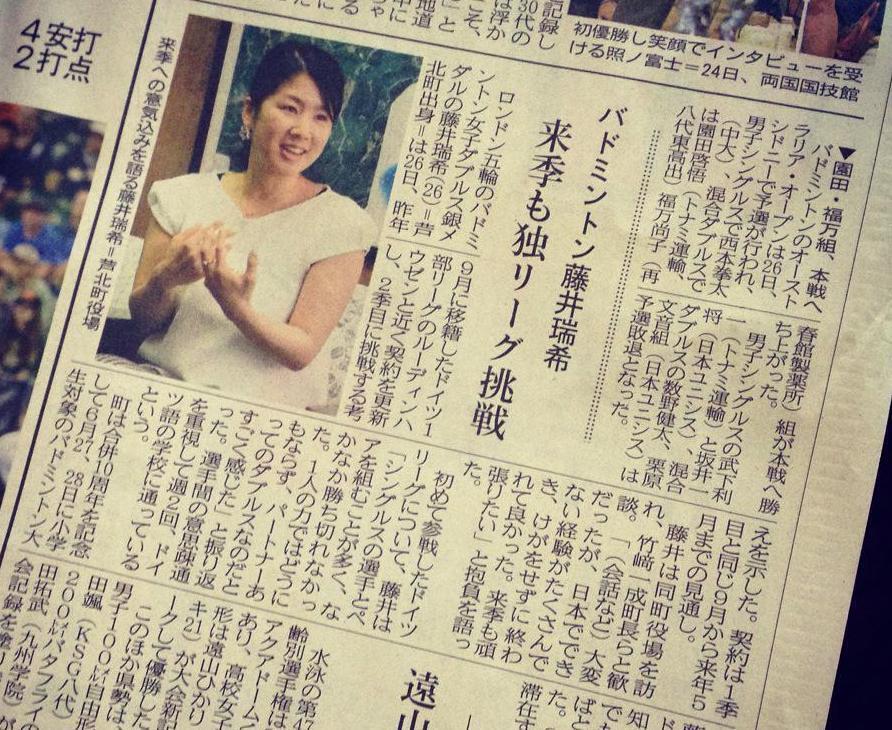 4安打
2打点
記録し
30代の
は浮か
こそ、
初優勝し笑顔でインタビューを受
ける照ノ富士＝24日、両国国技館
▼園田・福万組、本戦へ
バドミントンのオースト
ラリア・オープンは26日、
シドニーで予選が行われ、
男子シングルスで西本拳太
（中大）、混合ダブルスで
は園田啓悟（トナミ運輸、
八代東高出）福万尚子（再
春館製薬所）組が本戦へ勝
ち上がった。
男子シングルスの武下利
一（トナミ運輸）と坂井一
将（日本ユニシス）、混合
ダブルスの数野健太、栗原
文音組（日本ユニシス）は
予選敗退となった。
バドミントン藤井瑞希
来季も独リーグ挑戦
ロンドン五輪のバドミ
ントン女子ダブルス銀メ
ダルの藤井瑞希（26）＝芦
北町出身＝は26日、昨年
9月に移籍したドイツ1
部リーグのルーディンハ
ウゼンと近く契約を更新
し、2季目に挑戦する考
えを示した。契約は1季
目と同じ9月から来年5
月までの見通し。
藤井は同町役場を訪
れ、竹﨑一成町長らと歓
談。「（会話など）大変
だったが、日本でできな
い経験がたくさんで
き、けがをせずに終わ
れて良かった。来季も頑
張りたい」と抱負を語っ
た。
初めて参戦したドイツ
リーグについて、藤井は
「シングルスの選手とペ
アを組むことが多く、な
かなか勝ち切れなかっ
た。1人の力ではどうに
もならず、パートナーあ
ってのダブルスなのだと
すごく感じた」と振り返
った。選手間の意思疎通
を重視して週2回、ドイ
ツ語の学校に通っている
という。
町は合併10周年を記念
して6月27、28日に小学
生対象のバドミントン大
来季への意気込みを語る藤井瑞希＝芦北町役場
遠山
水泳の第47
齢別選手権は
アクアドームく
あり、高校女子
形は遠山ひかり
キ21）が大会新記
ークして優勝した
このほか県勢は、
男子100㍍自由形
田颯（KSG八代）
200㍍バタフライの
田拓武（九州学院）が
会記録を塗り